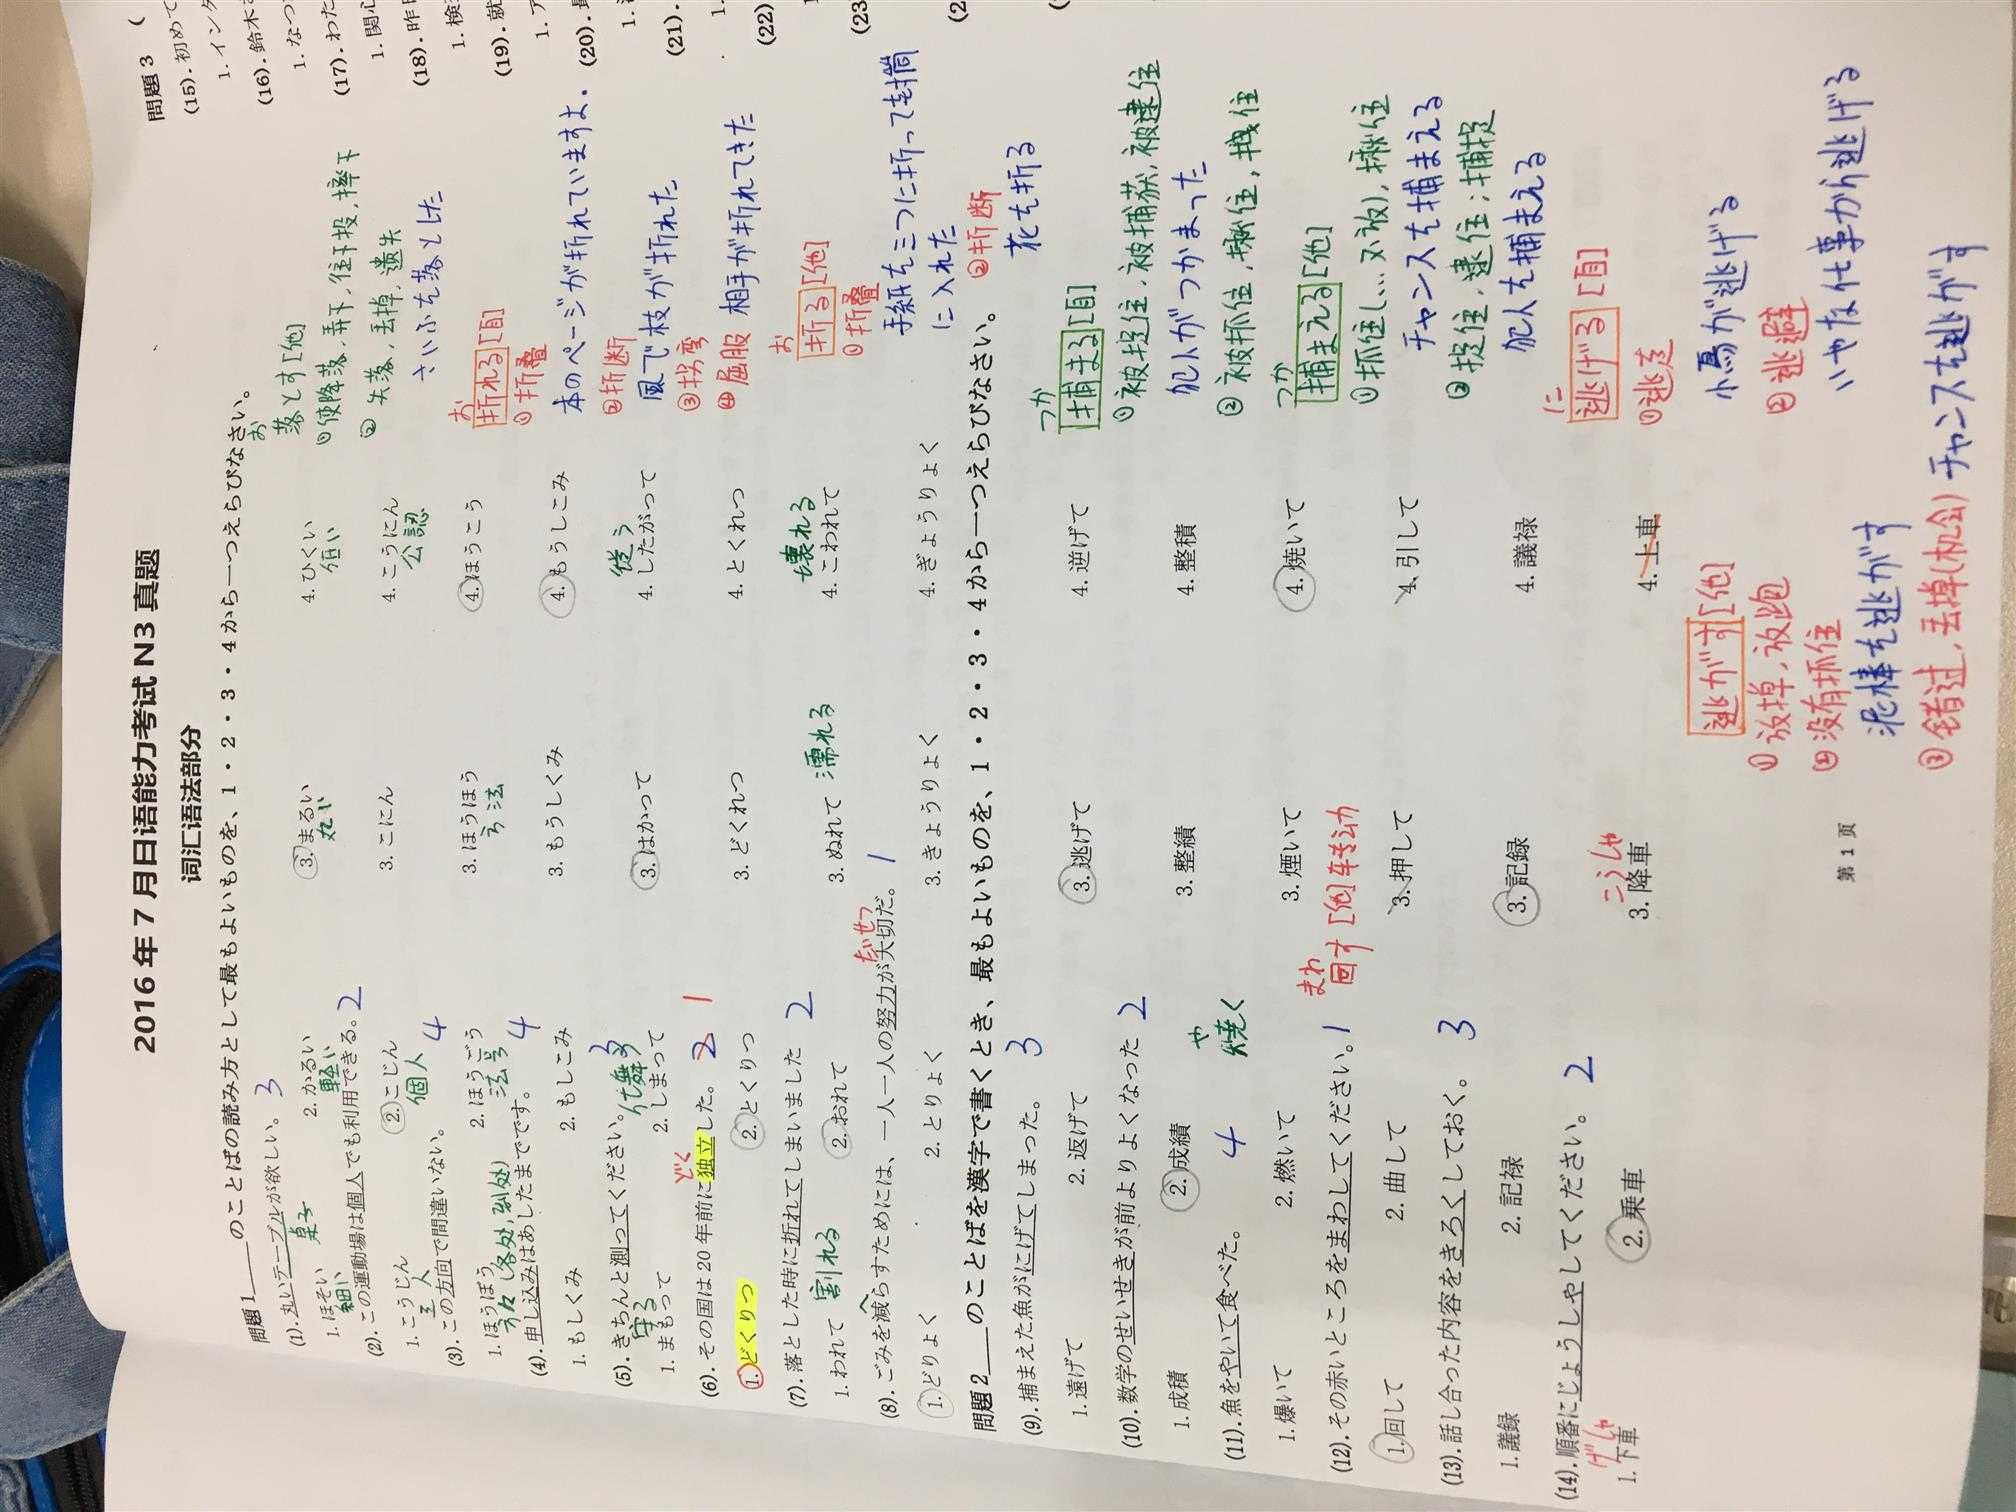 2016 年 7 月日语能力考试 N3 真题
词汇语法部分
問題 1____のことばの読み方として最もよいものを、1・2・3・4から一つえらびなさい。
(1). 丸いテーブルが欲しい。 3
桌子
1. ほそい 2. かるい 3. まるい 4. ひくい
細い 軽い 丸い 低い
(2). この運動場は個人でも利用できる。 2
1. こうじん 2. こじん 3. こにん 4. こうにん
人 個人 公認
(3). この方向で間違いない。 4
1. ほうぼう 2. ほうごう 3. ほうほう 4. ほうこう
方々(各处,到处) 法号 方法
(4). 申し込みはあしたまでです。 4
1. もしくみ 2. もしこみ 3. もうしくみ 4. もうしこみ
(5). きちんと測ってください。 3
1. まもって 2. しまって 3. はかって 4. したがって
守る 仕舞う 従う
(6). その国は 20 年前に独立した。 2 1
どく
1. どくりつ 2. とくりつ 3. どくれつ 4. とくれつ
(7). 落とした時に折れてしまいました 2
1. われて 2. おれて 3. ぬれて 4. こわれて
割れる 濡れる 壊れる
(8). ごみを減らすためには、一人一人の努力が大切だ。 1
へ たいせつ
1. どりょく 2. とりょく 3. きょうりょく 4. ぎょうりょく
問題 2____のことばを漢字で書くとき、最もよいものを、1・2・3・4から一つえらびなさい。
(9). 捕まえた魚がにげてしまった。 3
1. 遠げて 2. 返げて 3. 逃げて 4. 逆げて
(10). 数学のせいせきが前よりよくなった 2
1. 成積 2. 成績 3. 整績 4. 整積
(11). 魚をやいて食べた。 4
や
焼く
1. 爆いて 2. 燃いて 3. 煙いて 4. 焼いて
(12). その赤いところをまわしてください。 1
まわ
回す [他] 转动
1. 回して 2. 曲して 3. 押して 4. 引して
(13). 話し合った内容をきろくしておく。 3
1. 議録 2. 記禄 3. 記録 4. 議禄
(14). 順番にじょうしゃしてください。 2
げしゃ こうしゃ
1. 下車 2. 乗車 3. 降車 4. 上車
第 1 页
お
落とす [他]
① 使降落, 弄下, 往下投, 摔下
② 失落, 丢掉, 遗失
さいふを落とした
お
折れる [自]
① 折叠
本のページが折れていますよ.
② 折断
風で枝が折れた
③ 拐弯
④ 屈服 相手が折れてきた
お
折る [他]
① 折叠
手紙を三つに折って封筒
に入れた
② 折断
花を折る
つか
捕まる [自]
① 被捉住, 被捕获, 被逮住
犯人がつかまった
② 被抓住, 揪住, 拽住
つか
捕まえる [他]
① 抓住(…不放), 揪住
チャンスを捕まえる
② 捉住, 逮住; 捕捉
犯人を捕まえる
に
逃げる [自]
① 逃走
小鳥が逃げる
② 逃避
いやな仕事から逃げる
逃がす [他]
① 放掉, 放跑
② 没有抓住
泥棒を逃がす
③ 错过, 丢掉(机会) チャンスを逃がす
問題 3 (
(15). 初めて
1. イング
(16). 鈴木
1. なつ
(17). わた
1. 関心
(18). 昨
1. 検
(19). 就
1. ア
(20).
1.
(21).
1.
(22)
(23
(2